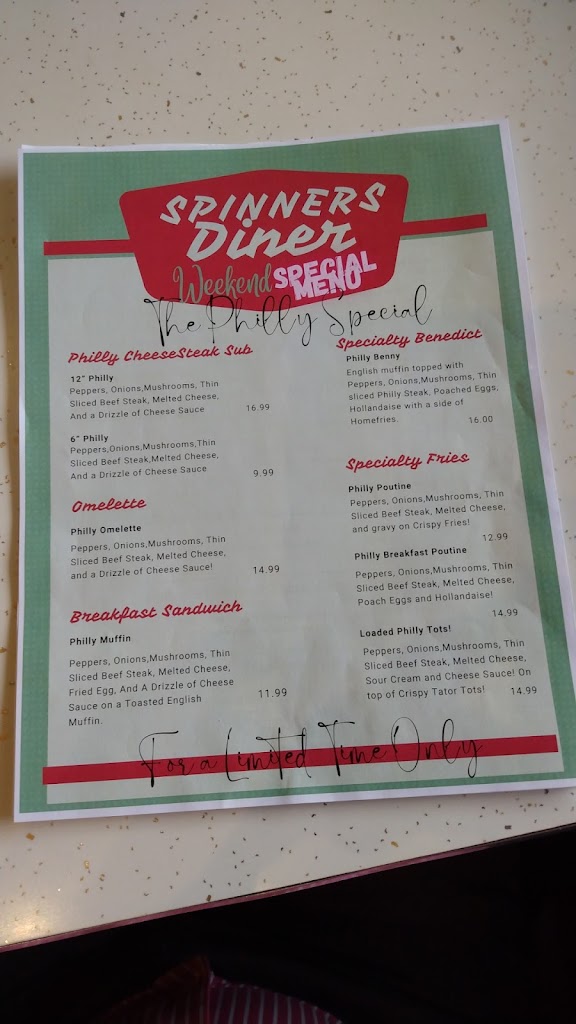 SPINNERS
Diner
Weekend SPECIAL MENU
The Philly Special
Philly CheeseSteak Sub
12" Philly
Peppers, Onions,Mushrooms, Thin
Sliced Beef Steak, Melted Cheese,
And a Drizzle of Cheese Sauce 16.99
6" Philly
Peppers,Onions,Mushrooms,Thin
Sliced Beef Steak,Melted Cheese,
And a Drizzle of Cheese Sauce 9.99
Omelette
Philly Omelette
Peppers, Onions,Mushrooms, Thin
Sliced Beef Steak, Melted Cheese,
and a Drizzle of Cheese Sauce! 14.99
Breakfast Sandwich
Philly Muffin
Peppers, Onions,Mushrooms, Thin
Sliced Beef Steak, Melted Cheese,
Fried Egg, And A Drizzle of Cheese
Sauce on a Toasted English 11.99
Muffin.
Specialty Benedict
Philly Benny
English muffin topped with
Peppers, Onions,Mushrooms, Thin
sliced Philly Steak, Poached Eggs,
Hollandaise with a side of
Homefries. 16.00
Specialty Fries
Philly Poutine
Peppers, Onions,Mushrooms, Thin
Sliced Beef Steak, Melted Cheese,
and gravy on Crispy Fries!
12.99
Philly Breakfast Poutine
Peppers, Onions,Mushrooms, Thin
Sliced Beef Steak, Melted Cheese,
Poach Eggs and Hollandaise!
14.99
Loaded Philly Tots!
Peppers, Onions,Mushrooms, Thin
Sliced Beef Steak, Melted Cheese,
Sour Cream and Cheese Sauce! On
top of Crispy Tator Tots! 14.99
For a Limited Time Only